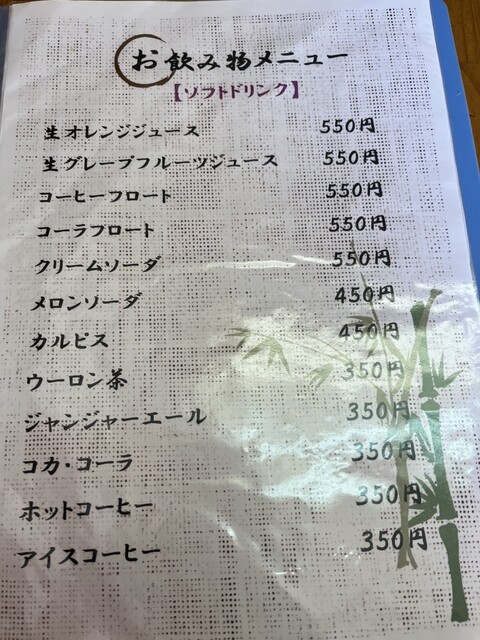 お飲み物メニュー
【ソフトドリンク】
生オレンジジュース 550円
生グレープフルーツジュース 550円
コーヒーフロート 550円
コーラフロート 550円
クリームソーダ 550円
メロンソーダ 450円
カルピス 450円
ウーロン茶 350円
ジャンジャーエール 350円
コカ・コーラ 350円
ホットコーヒー 350円
アイスコーヒー 350円